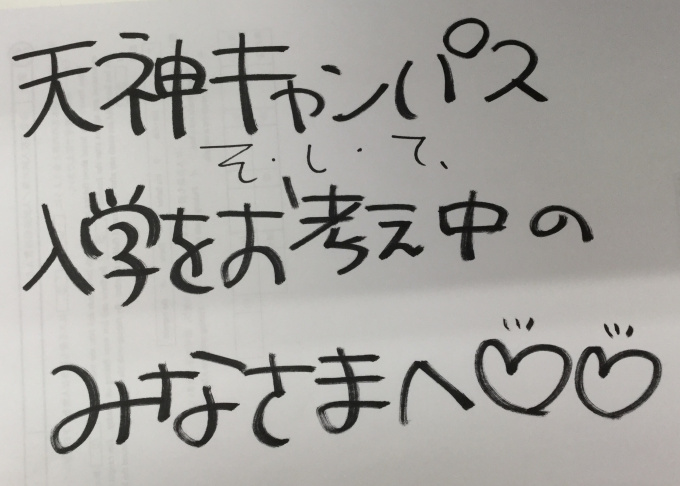 天神キャンパス
そ・し・て、
入学をお考え中の
みなさまへ♡♡